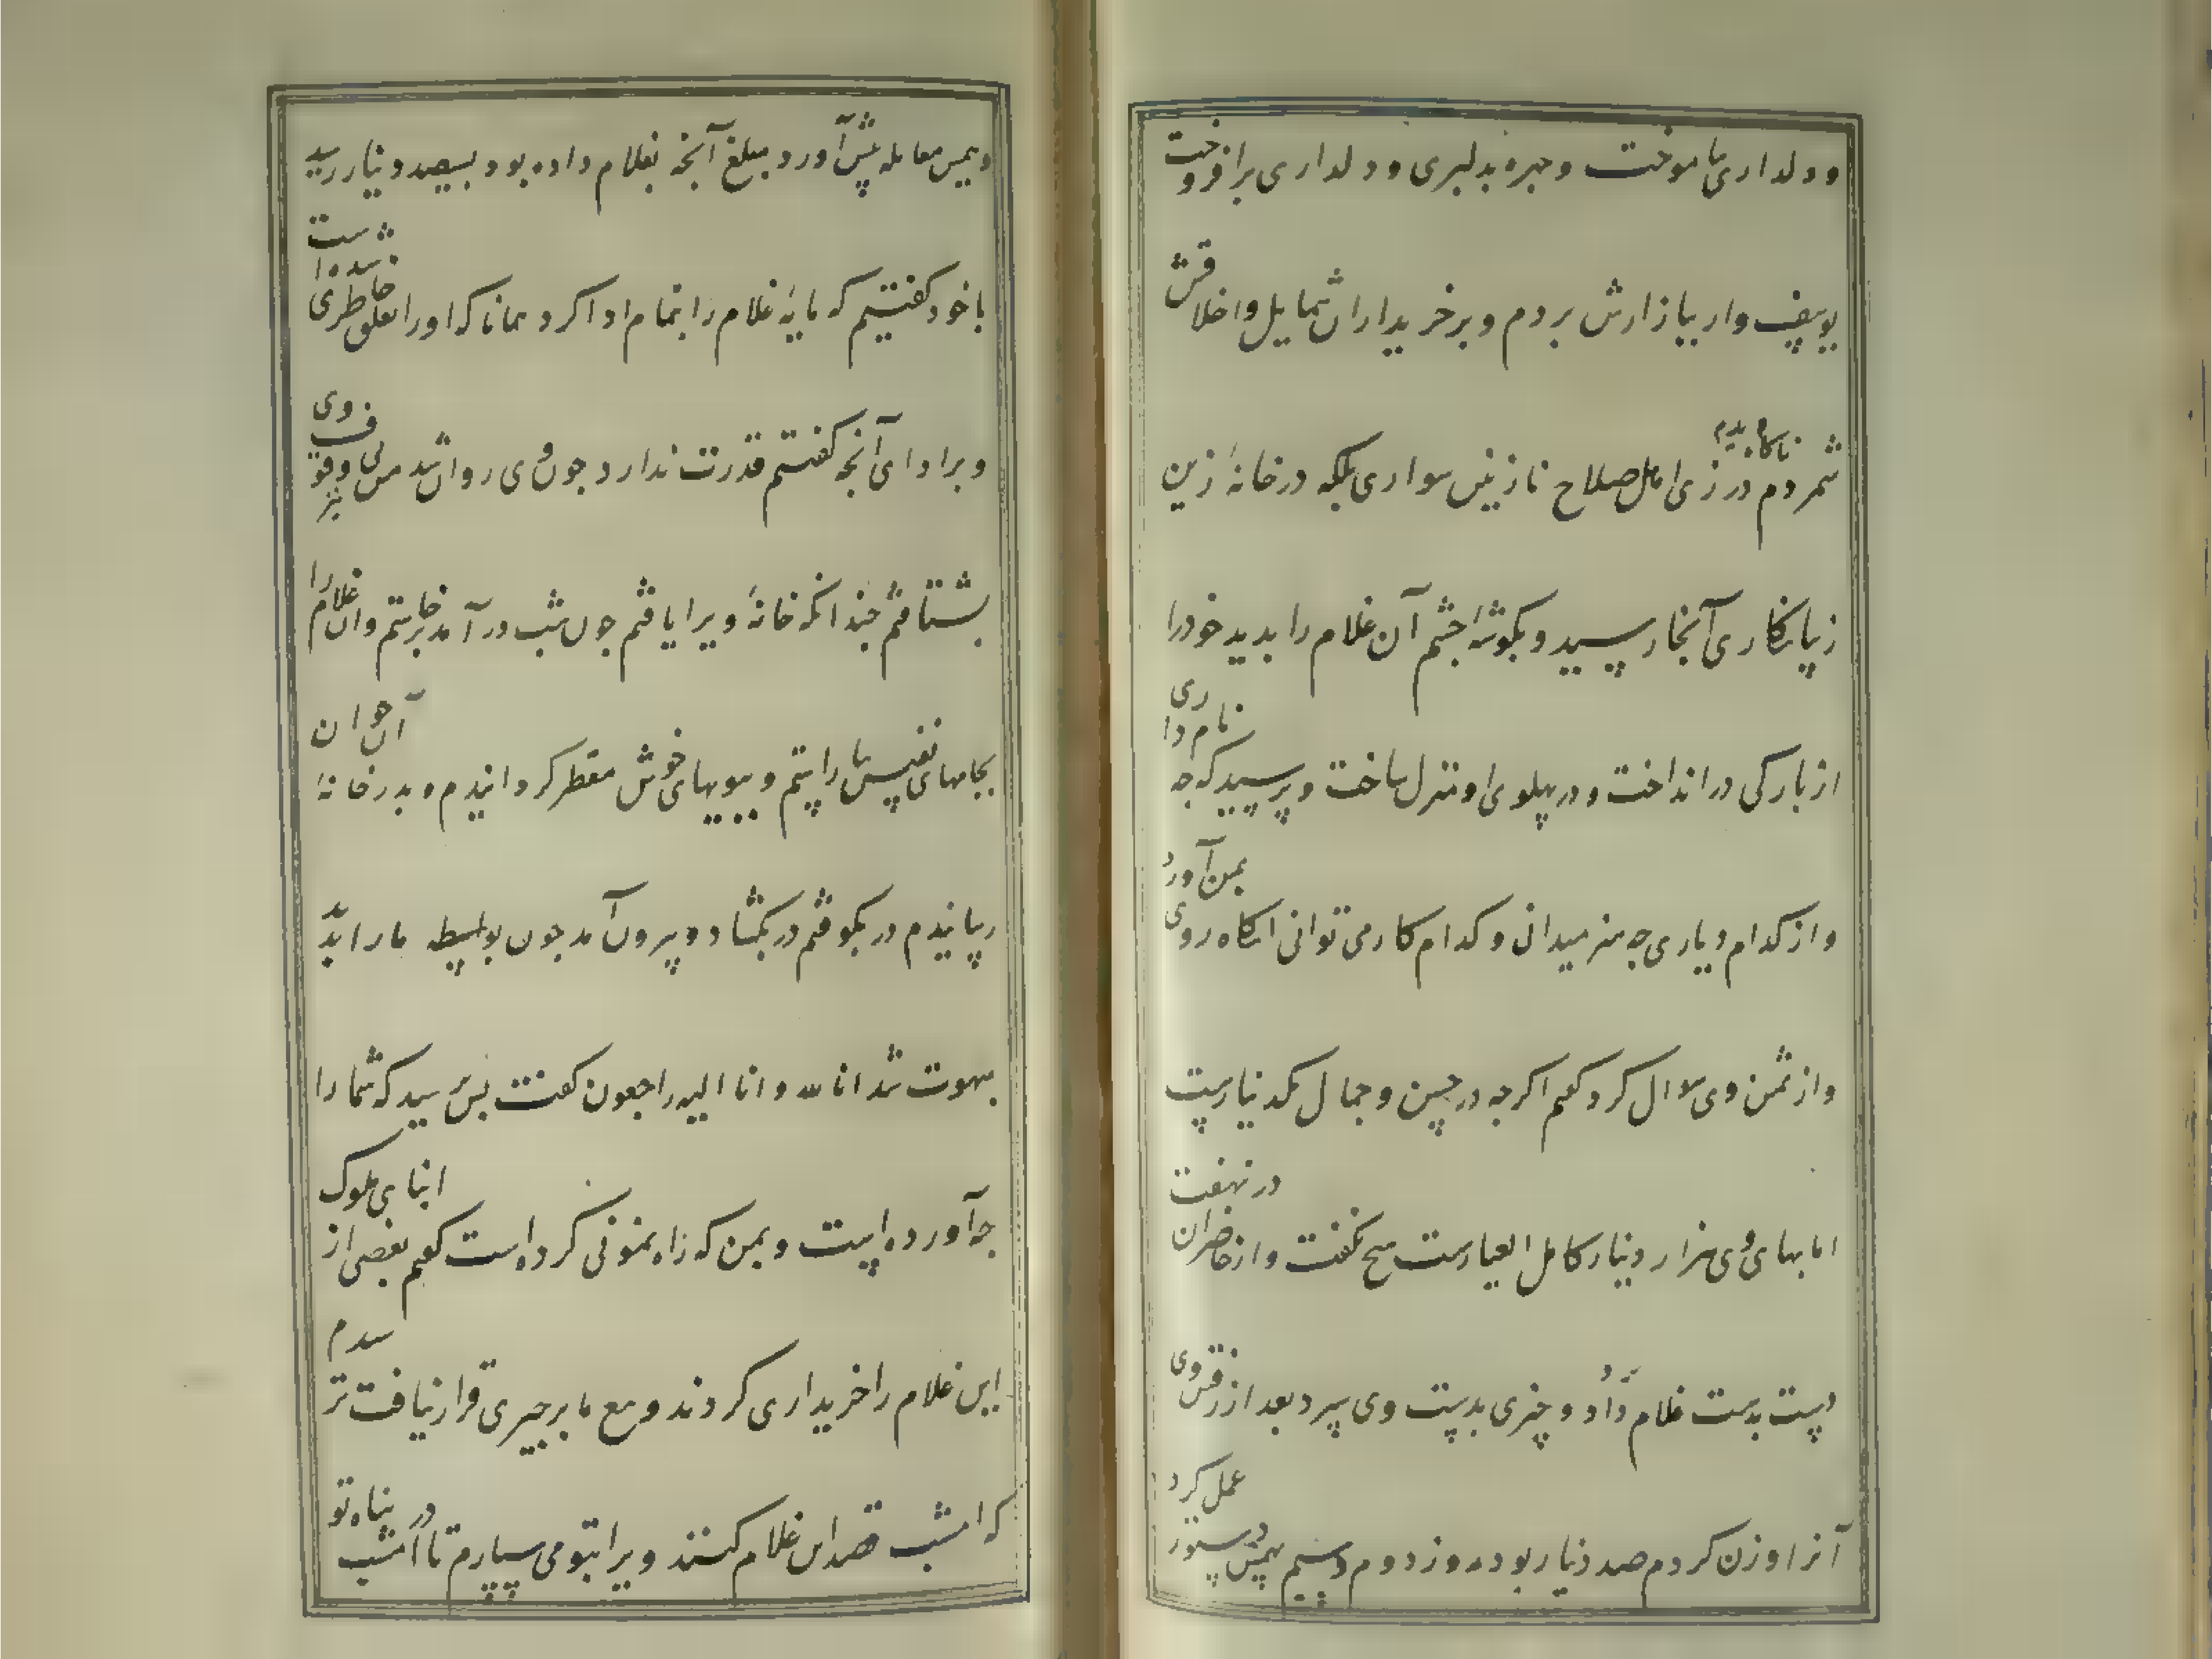 و دلداری بیاموخت و چهره بدلبری و دلداری برافروخت
یوسف وار ببازارش بردم و بر خریداران شمایل و اخلاقش
شمردم ناکاه بدیدم در زی اهل صلاح نازنین سواری بلکه در خانهٔ زین
زیبا نکاری آنجا رسید و بکوشهٔ چشم آن غلام را بدید خود را
از بارکی در انداخت و در پهلوی او منزل ساخت و پرسید که چه نام داری
و از کدام دیاری چه هنر میدانی و کدام کار می توانی آنکاه روی بمن آورد
و از ثمن وی سوال کرد کفتم اکرچه در حسن و جمال یکدینارست
اما بهای وی هزار دینار کامل العیارست هیچ نکفت و از حاضران در نهفت
دست بدست غلام برد و چیزی بدست وی سپرد بعد از رفتن وی
آنرا وزن کردم صد دینار بود و روز دوم و سیم بهمین دستور عمل کرد
و همین معامله پیش آورد مبلغ آنچه بغلام داده بود بسیصد دینار رسید
با خود کفتیم که مایهٔ غلام را بتمام ادا کرد همانا که او را تعلق خاطری شده است
و بر ادای آنچه کفتم قدرت ندارد چون وی روان شد من نیز بی وقوف وی
بشتافتم چندانکه خانهٔ ویرا یافتم چون شب در آمد برخاستم و آن غلام را
بجامهای نفیس بیاراستم و ببویهای خوش معطر کردانیدم و بدر خانهٔ آن جوان
رسانیدم در بکوفتم در بکشاد و بیرون آمد چون بواسطه ما را بدید
مبهوت شد انا لله و انا الیه راجعون کفت پس پرسید که شما را
چه آورده است و بمن که راه نمونی کرده است کفتم بعضی از ابنای ملوک
این غلام را خریداری کردند و بیع ما بر چیزی قرار نیافت ترسیدم
که امشب قصد این غلام کنند ویرا بتو می سپارم تا امشب در پناه تو